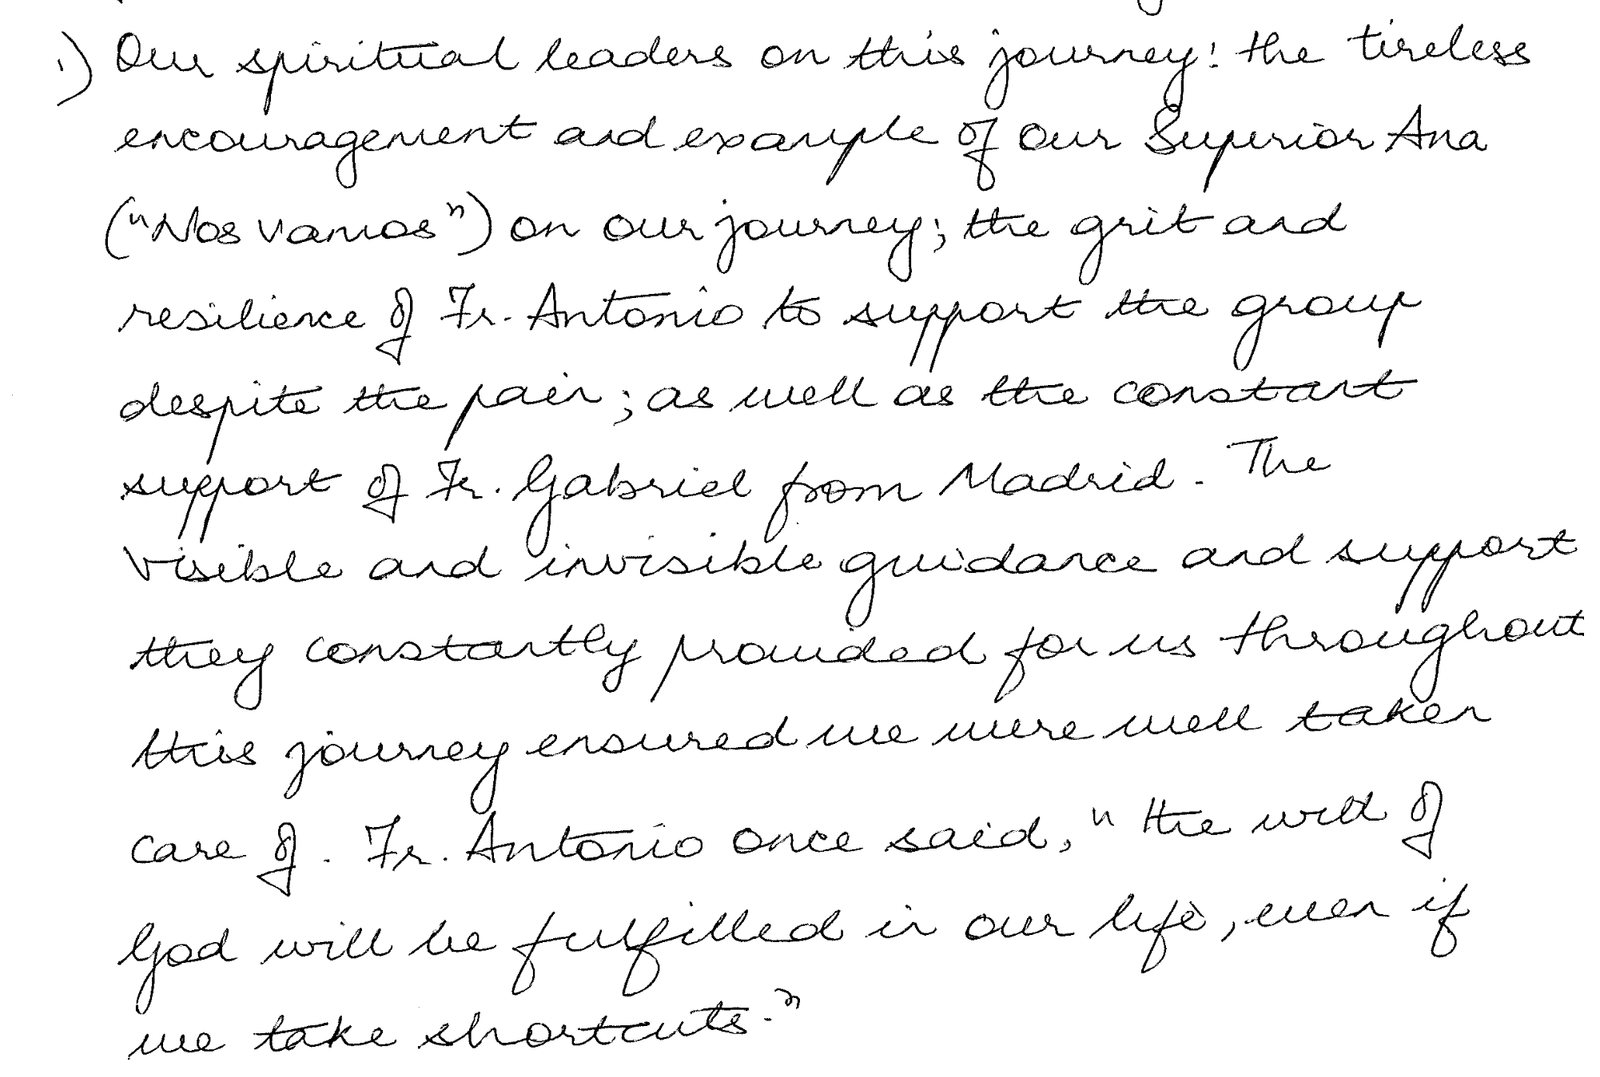 1) Our spiritual leaders on this journey: the tireless
encouragement and example of our Superior Ana
("Nos vamos") on our journey; the grit and
resilience of Fr. Antonio to support the group
despite the pain; as well as the constant
support of Fr. Gabriel from Madrid. The
visible and invisible guidance and support
they constantly provided for us throughout
this journey ensured we were well taken
care of. Fr. Antonio once said, "the will of
God will be fulfilled in our life, even if
we take shortcuts."